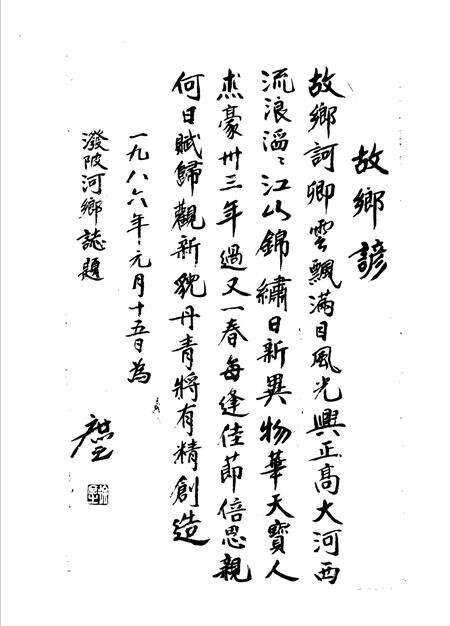 故鄉諺
故鄉訶卿雲飄滿目風光興正高大河西
流浪滔〻江山錦繡日新異物華天寶人
杰豪卅三年過又一春每逢佳節倍思親
何日賦歸觀新貌丹青將有精創造
一九八六年元月十五日為
潑陂河鄉誌題